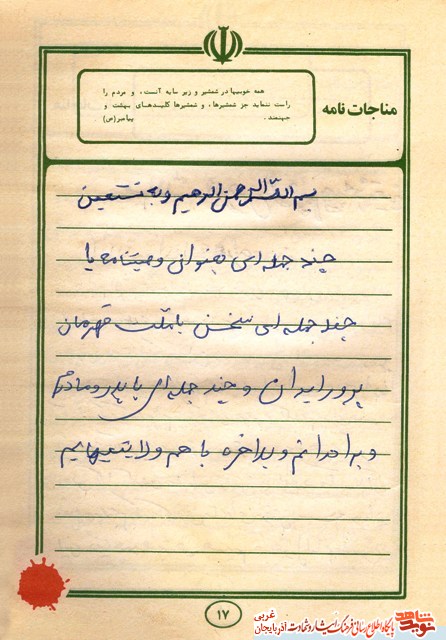 مناجات نامه
همه خوبیها در شمشیر و زیر سایه آنست، و مردم را
راست ننماید جز شمشیرها، و شمشیرها کلیدهای بهشت و
جهنمند. پیامبر(ص)
بسم الله الرحمن الرحیم و به نستعین
چند جمله ای بعنوان وصیتنامه یا
چند جمله ای سخن با ملت قهرمان
پرور ایران و چند جمله ای با پدر و مادرم
و برادرانم و بلاخره با هم ولایتیهایم
۱۷
نوید شاهد
پایگاه اطلاع رسانی فرهنگ ایثار و شهادت آذربایجان غربی